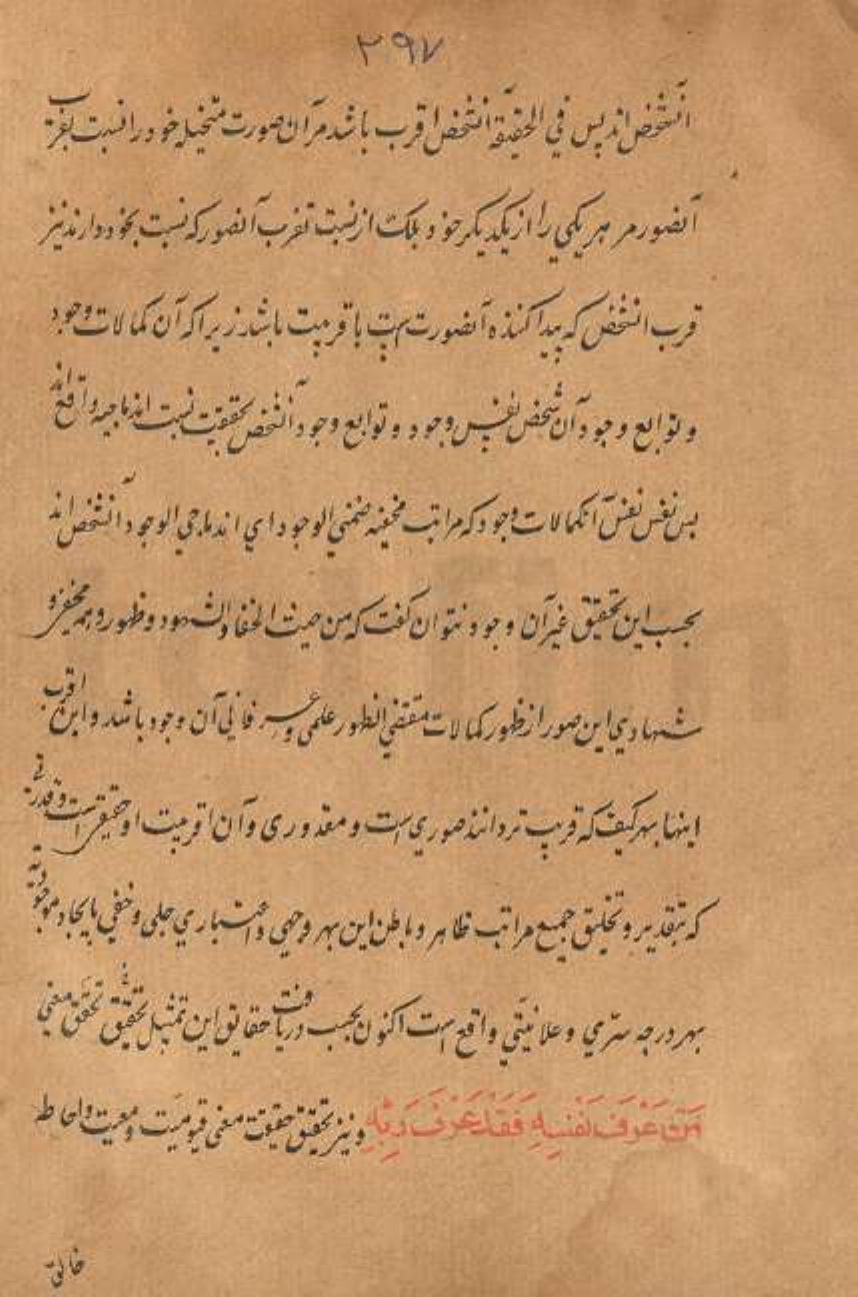 ۲۹۷
آنشخص اند پس في الحقیقة آنشخص اقرب باشد مر آن صورت متخیله خود را نسبت بقرب
آنصور مر هر یکي را از یکدیکر خود بلکه از نسبت تقرب آنصور که نسبت بخود دارند نیز
قرب آنشخص که پیدا کننده آنصورت است با قربیت باشد زیرا که آن کمالات وجود
و توابع وجود آن شخص بنفس وجود و توابع وجود آنشخص بحقیقت نسبت اندماجیه واقع اند
پس نفس نفس آنکمالات وجود که مراتب مخفیه ضمني الوجود اي اندماجي الوجود آنشخص اند
بحسب این تحقیق غیر آن وجود نتوان کفت که من حیث الخفا والشهود و ظهور و هم
شهادي این صور از ظهور کمالات مقتضي الظهور علمي و فاني آن وجود باشد و این اقرب
اینها بهر کیف که قریب تر دانند صوري است و مقدوری و آن اقربیت او حقیقي است و قدرتي
که بتقدیر و تخلیق جمیع مراتب ظاهر و باطن این بهر وجهي و اعتباري جلي و خفي بایجاد موجودیة
بهر درجه سرّي و علانیتي واقع است اکنون بحسب دریافت حقایق این تمثیل تحقیق تحقق معني
مَنْ عَرَفَ نَفْسَهُ فَقَدْ عَرَفَ رَبَّهُ و نیز تحقیق حقیقت معني قیومیت و معیت و احاطه